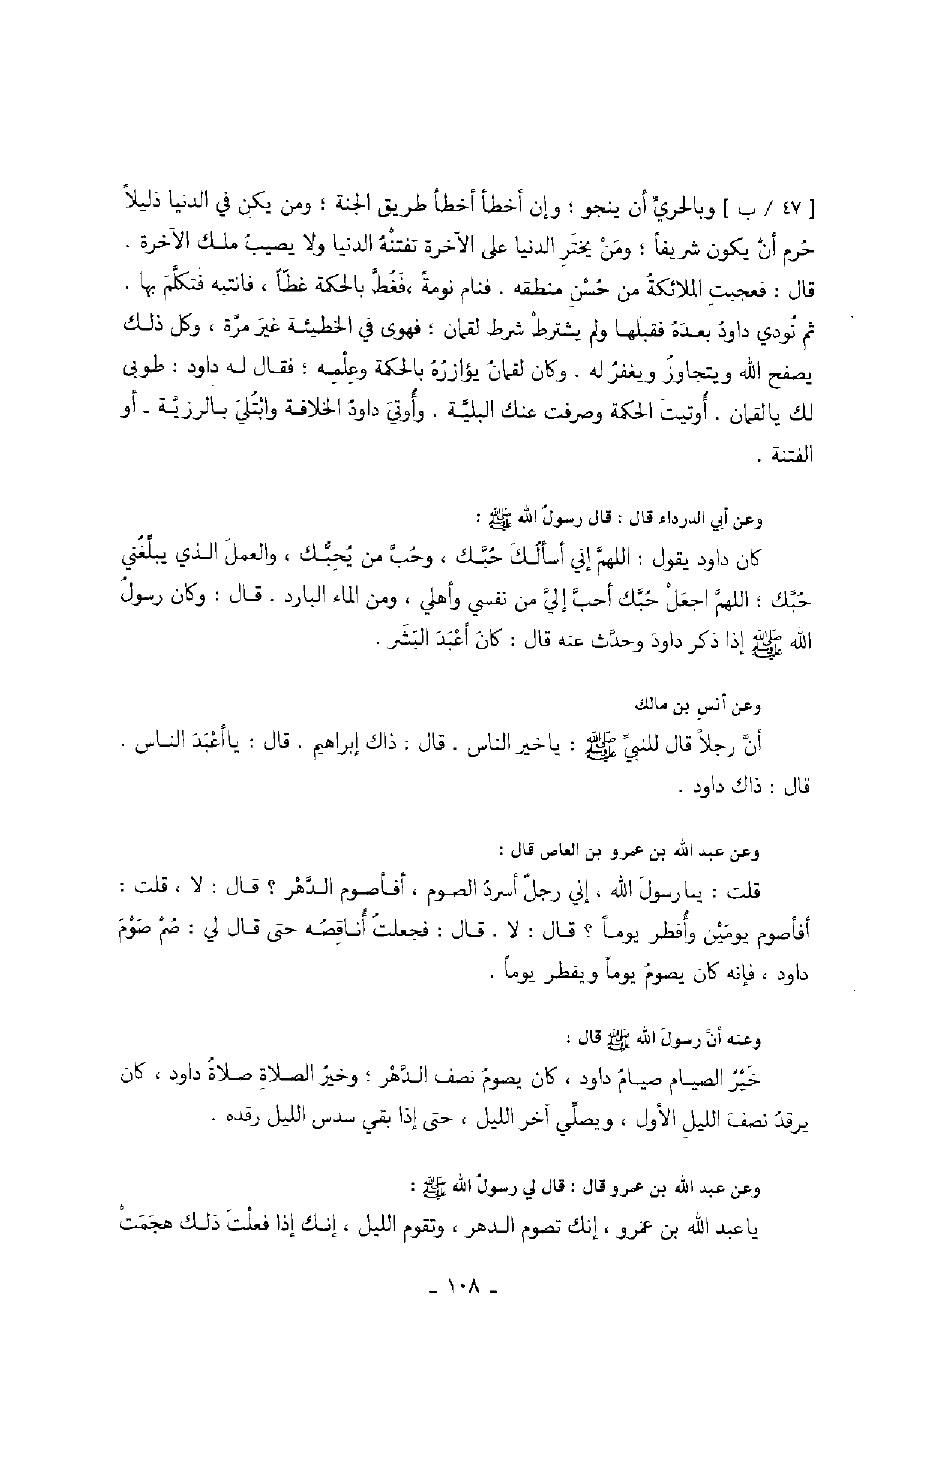 [ ٤٧ / ب ] وبالحريِّ أن ينجو ؛ وإن أخطأ أخطأ طريق الجنة ؛ ومن يكن في الدنيا ذليلاً
خرم أنْ يكون شريفاً ؛ ومَنْ يختَرِ الدنيا على الآخرة تفتنْهُ الدنيا ولا يصيبُ ملك الآخرة .
قال : فعجبتِ الملائكةُ من حُسْنِ منطقه . فنام نومةً ،فَغُطَّ بالحكمة غطّاً ، فانتبه فتكلَّمَ بها .
ثم نُودي داودُ بعدَهُ فقبلها ولم يشترطْ شرط لقمان ؛ فهوى في الخطيئة غيرَ مرّة ، وكل ذلك
يصفح الله ويتجاوزُ ويغفرُ له . وكان لقمانُ يؤازرُهُ بالحكمة وعِلْمِه ؛ فقال له داود : طوبى
لك يالقمان . أُوتيتَ الحكمة وصرفت عنك البليَّة . وأُوتيَ داودُ الخلافة وابْتُلَي بالرزيَّة ـ أو
الفتنة .
وعن أبي الدرداء قال : قال رسولُ الله ﷺ :
كان داود يقول : اللهمَّ إني أسألُكَ حُبَّك ، وحُبَّ من يُحِبُّك ، والعملَ الذي يبلِّغُني
حُبَّك ؛ اللهمَّ اجعَلْ حُبَّك أحبَّ إليَّ من نفسي وأهلي ، ومن الماء البارد . قال : وكان رسولُ
الله ﷺ إذا ذكر داودَ وحدَّث عنه قال : كانَ أعْبَدَ البَشَرِ .
وعن أنسِ بن مالك
أنَّ رجلاً قال للنبيِّ ﷺ : ياخير الناس . قال : ذاك إبراهيم . قال : ياأعْبَدَ الناس .
قال : ذاك داود .
وعن عبد الله بن عمرو بن العاص قال :
قلت : يارسولَ الله ، إني رجلٌ أسردُ الصوم ، أفأصوم الدَّهْر ؟ قال : لا ، قلت :
أفأصوم يومَيْن وأُفطر يوماً ؟ قال : لا . قال : فجعلتُ أُناقِصُه حتى قال لي : صُمْ صَوْمَ
داود ، فإنه كان يصومُ يوماً ويفطر يوماً .
وعنه أنَّ رسولَ الله ﷺ قال :
خَيْرُ الصيام صيامُ داود ، كان يصومُ نصف الدَّهْر ؛ وخيرُ الصلاةِ صلاةُ داود ، كان
يرقدُ نصفَ الليلِ الأول ، ويصلِّي آخر الليل ، حتى إذا بقي سدس الليل رقده .
وعن عبد الله بن عمرو قال : قال لي رسولُ الله ﷺ :
ياعبد الله بن عمرو ، إنك تصوم الدهر ، وتقوم الليل ، إنك إذا فعلْتَ ذلك هجَمَتْ
ـ ١٠٨ ـ